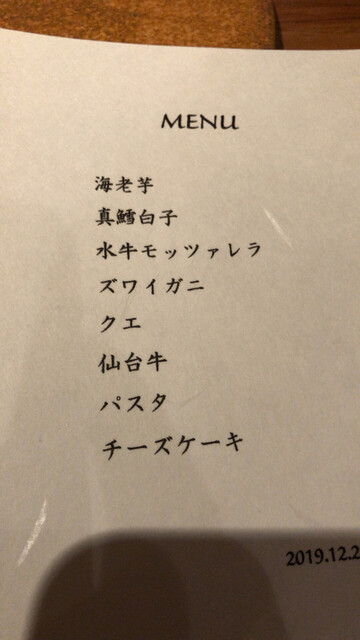 MENU
海老芋
真鱈白子
水牛モッツァレラ
ズワイガニ
クエ
仙台牛
パスタ
チーズケーキ
2019.12.2